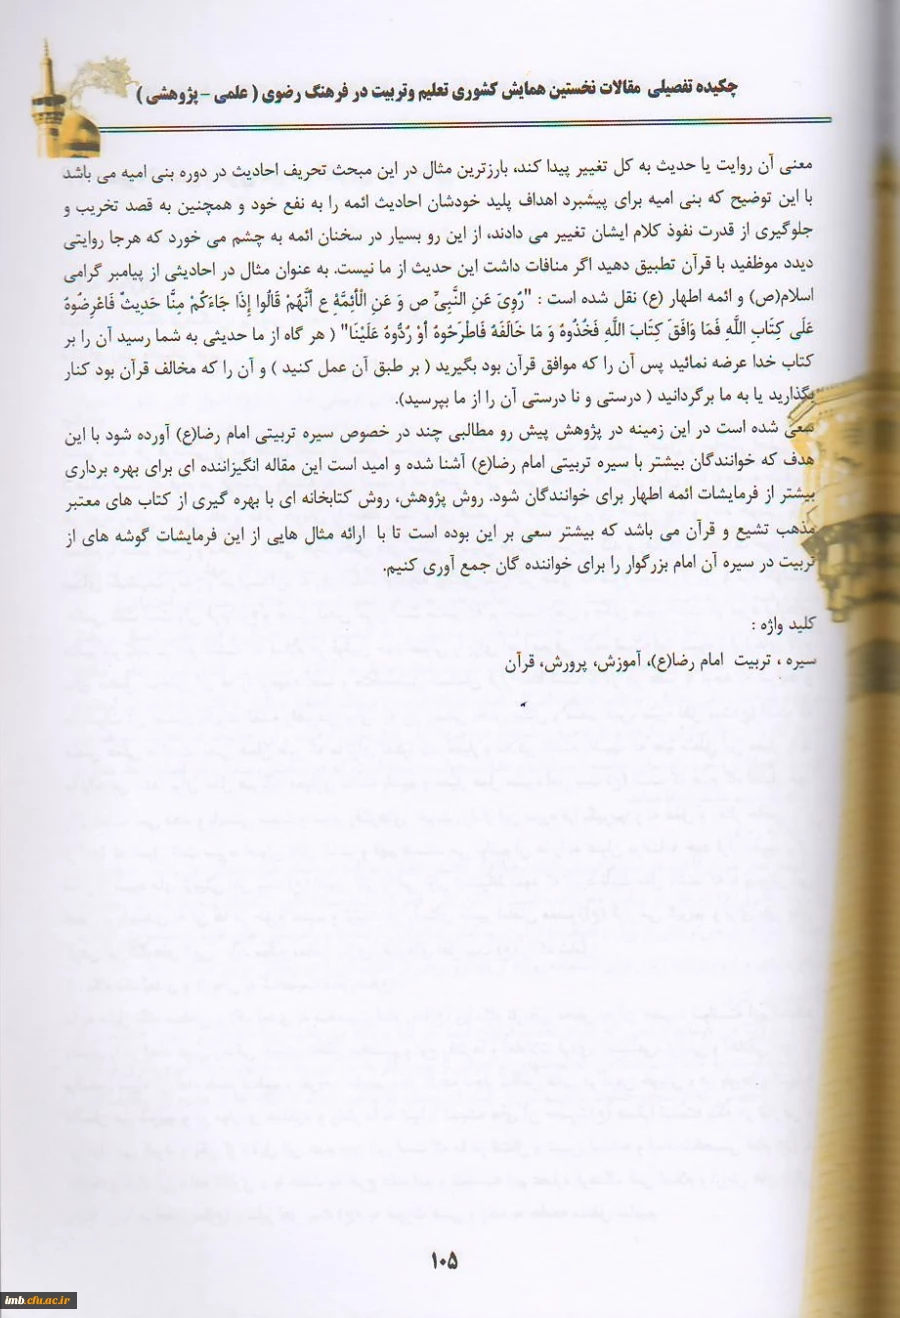 چکیده تفصیلی مقالات نخستین همایش کشوری تعلیم وتربیت در فرهنگ رضوی ( علمی - پژوهشی )
معنی آن روایت یا حدیث به کل تغییر پیدا کند، بارزترین مثال در این مبحث تحریف احادیث در دوره بنی امیه می باشد
با این توضیح که بنی امیه برای پیشبرد اهداف پلید خودشان احادیث ائمه را به نفع خود و همچنین به قصد تخریب و
جلوگیری از قدرت نفوذ کلام ایشان تغییر می دادند، از این رو بسیار در سخنان ائمه به چشم می خورد که هرجا روایتی
دیدد موظفید با قرآن تطبیق دهید اگر منافات داشت این حدیث از ما نیست. به عنوان مثال در احادیثی از پیامبر گرامی
اسلام(ص) و ائمه اطهار (ع) نقل شده است : "رُوِیَ عَنِ النَّبِیِّ ص وَ عَنِ الْأَئِمَّةِ ع أَنَّهُمْ قَالُوا إِذَا جَاءَكُمْ مِنَّا حَدِیثٌ فَاعْرِضُوهُ
عَلَی كِتَابِ اللَّهِ فَمَا وَافَقَ كِتَابَ اللَّهِ فَخُذُوهُ وَ مَا خَالَفَهُ فَاطْرَحُوهُ أَوْ رُدُّوهُ عَلَیْنَا" ( هر گاه از ما حدیثی به شما رسید آن را بر
کتاب خدا عرضه نمائید پس آن را که موافق قرآن بود بگیرید ( بر طبق آن عمل کنید ) و آن را که مخالف قرآن بود کنار
بگذارید یا به ما برگردانید ( درستی و نا درستی آن را از ما بپرسید).
سعی شده است در این زمینه در پژوهش پیش رو مطالبی چند در خصوص سیره تربیتی امام رضا(ع) آورده شود با این
هدف که خوانندگان بیشتر با سیره تربیتی امام رضا(ع) آشنا شده و امید است این مقاله انگیزاننده ای برای بهره برداری
بیشتر از فرمایشات ائمه اطهار برای خوانندگان شود. روش پژوهش، روش کتابخانه ای با بهره گیری از کتاب های معتبر
مذهب تشیع و قرآن می باشد که بیشتر سعی بر این بوده است تا با ارائه مثال هایی از این فرمایشات گوشه های از
تربیت در سیره آن امام بزرگوار را برای خواننده گان جمع آوری کنیم.
کلید واژه :
سیره ، تربیت امام رضا(ع)، آموزش، پرورش، قرآن
۱۰۵
imb.cfu.ac.ir